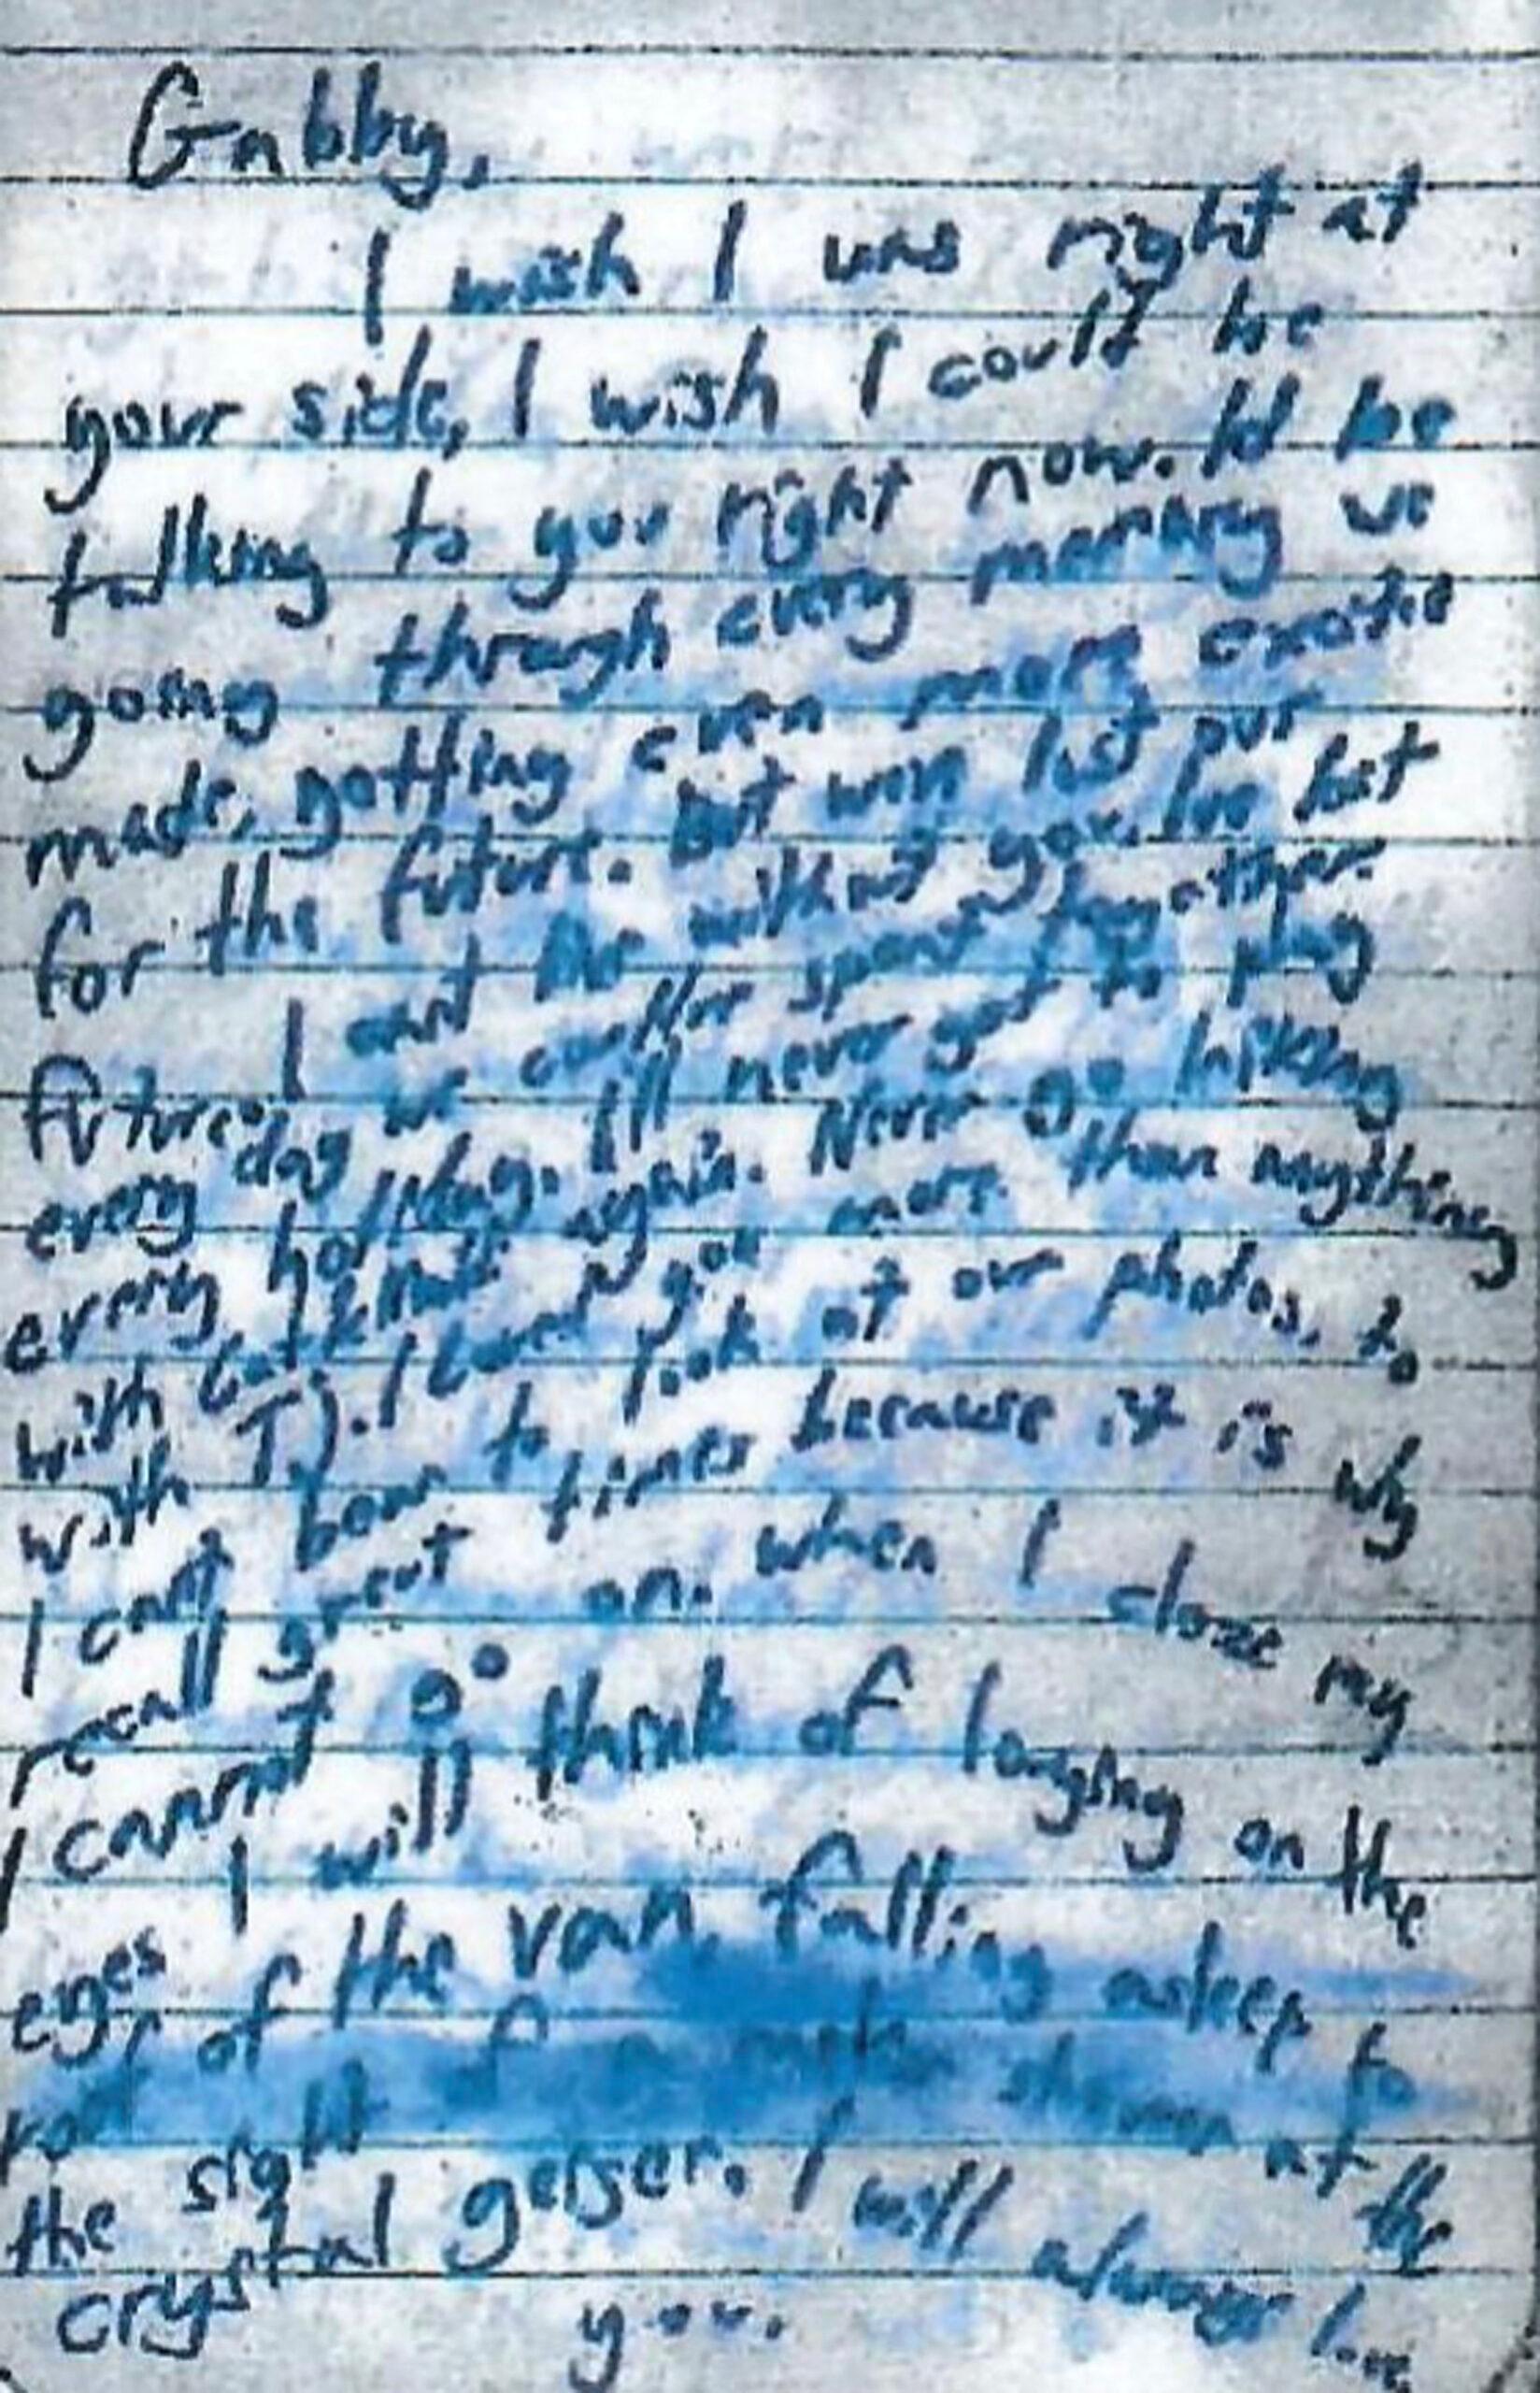 Gabby,
I wish I was right at
your side, I wish I could be
talking to you right now. Id be
going through every memory we
made, getting even more excited
for the future. but we've lost our
future. I can't be without you. I've lost
every day we could've spent together.
every holiday. I'll never get to play
with again. Never go hiking
with TJ. I loved you more than anything
I can't bear to look at our photos, to
recall great times because it is why
I cannot go on. when I close my
eyes I will think of laughing on the
roof of the van, falling asleep to
the sight of at the
crystal geiser. I will always love
you.